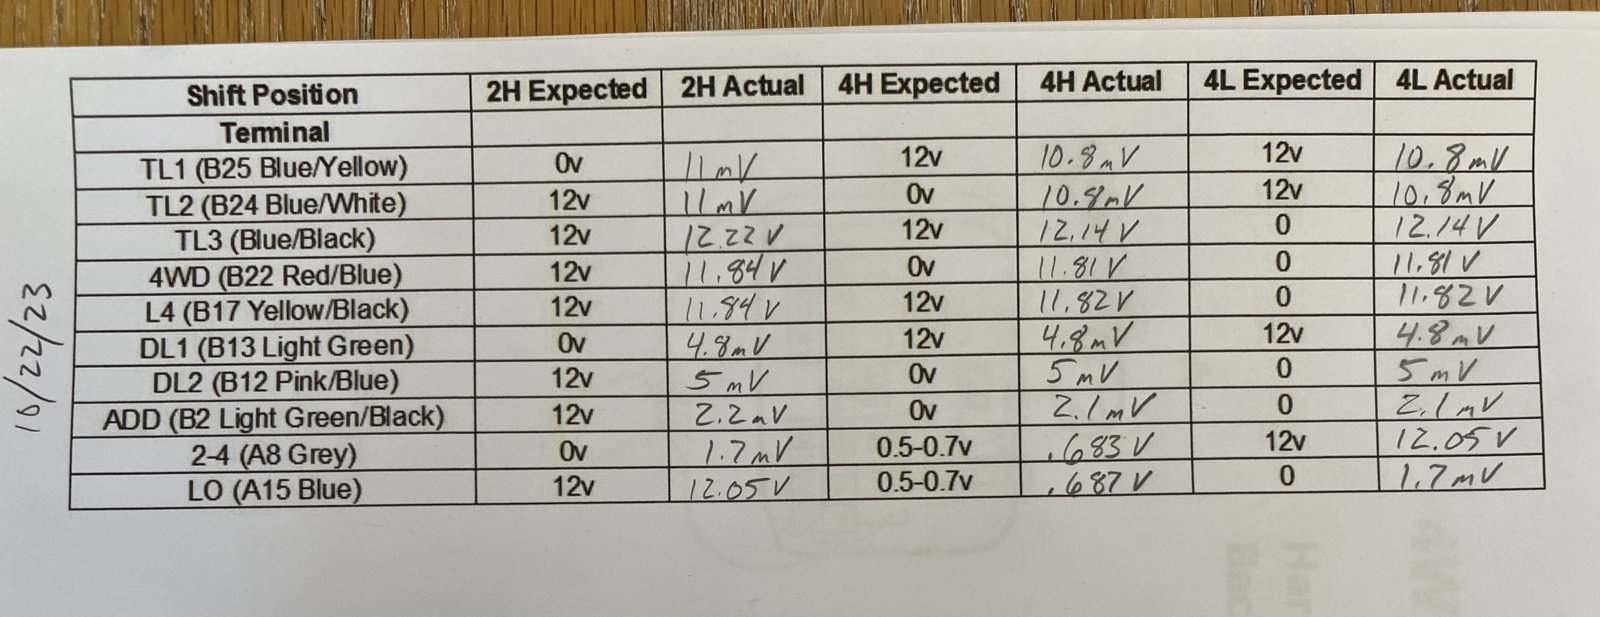 Shift Position 2H Expected 2H Actual 4H Expected 4H Actual 4L Expected 4L Actual
Terminal
TL1 (B25 Blue/Yellow) 0v 11 mV 12v 10.8mV 12v 10.8mV
TL2 (B24 Blue/White) 12v 11 mV 0v 10.8mV 12v 10.8mV
TL3 (Blue/Black) 12v 12.22 V 12v 12.14 V 0 12.14 V
4WD (B22 Red/Blue) 12v 11.84 V 0v 11.81 V 0 11.81 V
L4 (B17 Yellow/Black) 12v 11.84 V 12v 11.82 V 0 11.82 V
DL1 (B13 Light Green) 0v 4.8mV 12v 4.8mV 12v 4.8mV
DL2 (B12 Pink/Blue) 12v 5 mV 0v 5 mV 0 5 mV
ADD (B2 Light Green/Black) 12v 2.2mV 0v 2.1mV 0 2.1mV
2-4 (A8 Grey) 0v 1.7mV 0.5-0.7v .683 V 12v 12.05 V
LO (A15 Blue) 12v 12.05 V 0.5-0.7v .687 V 0 1.7mV
10/22/23